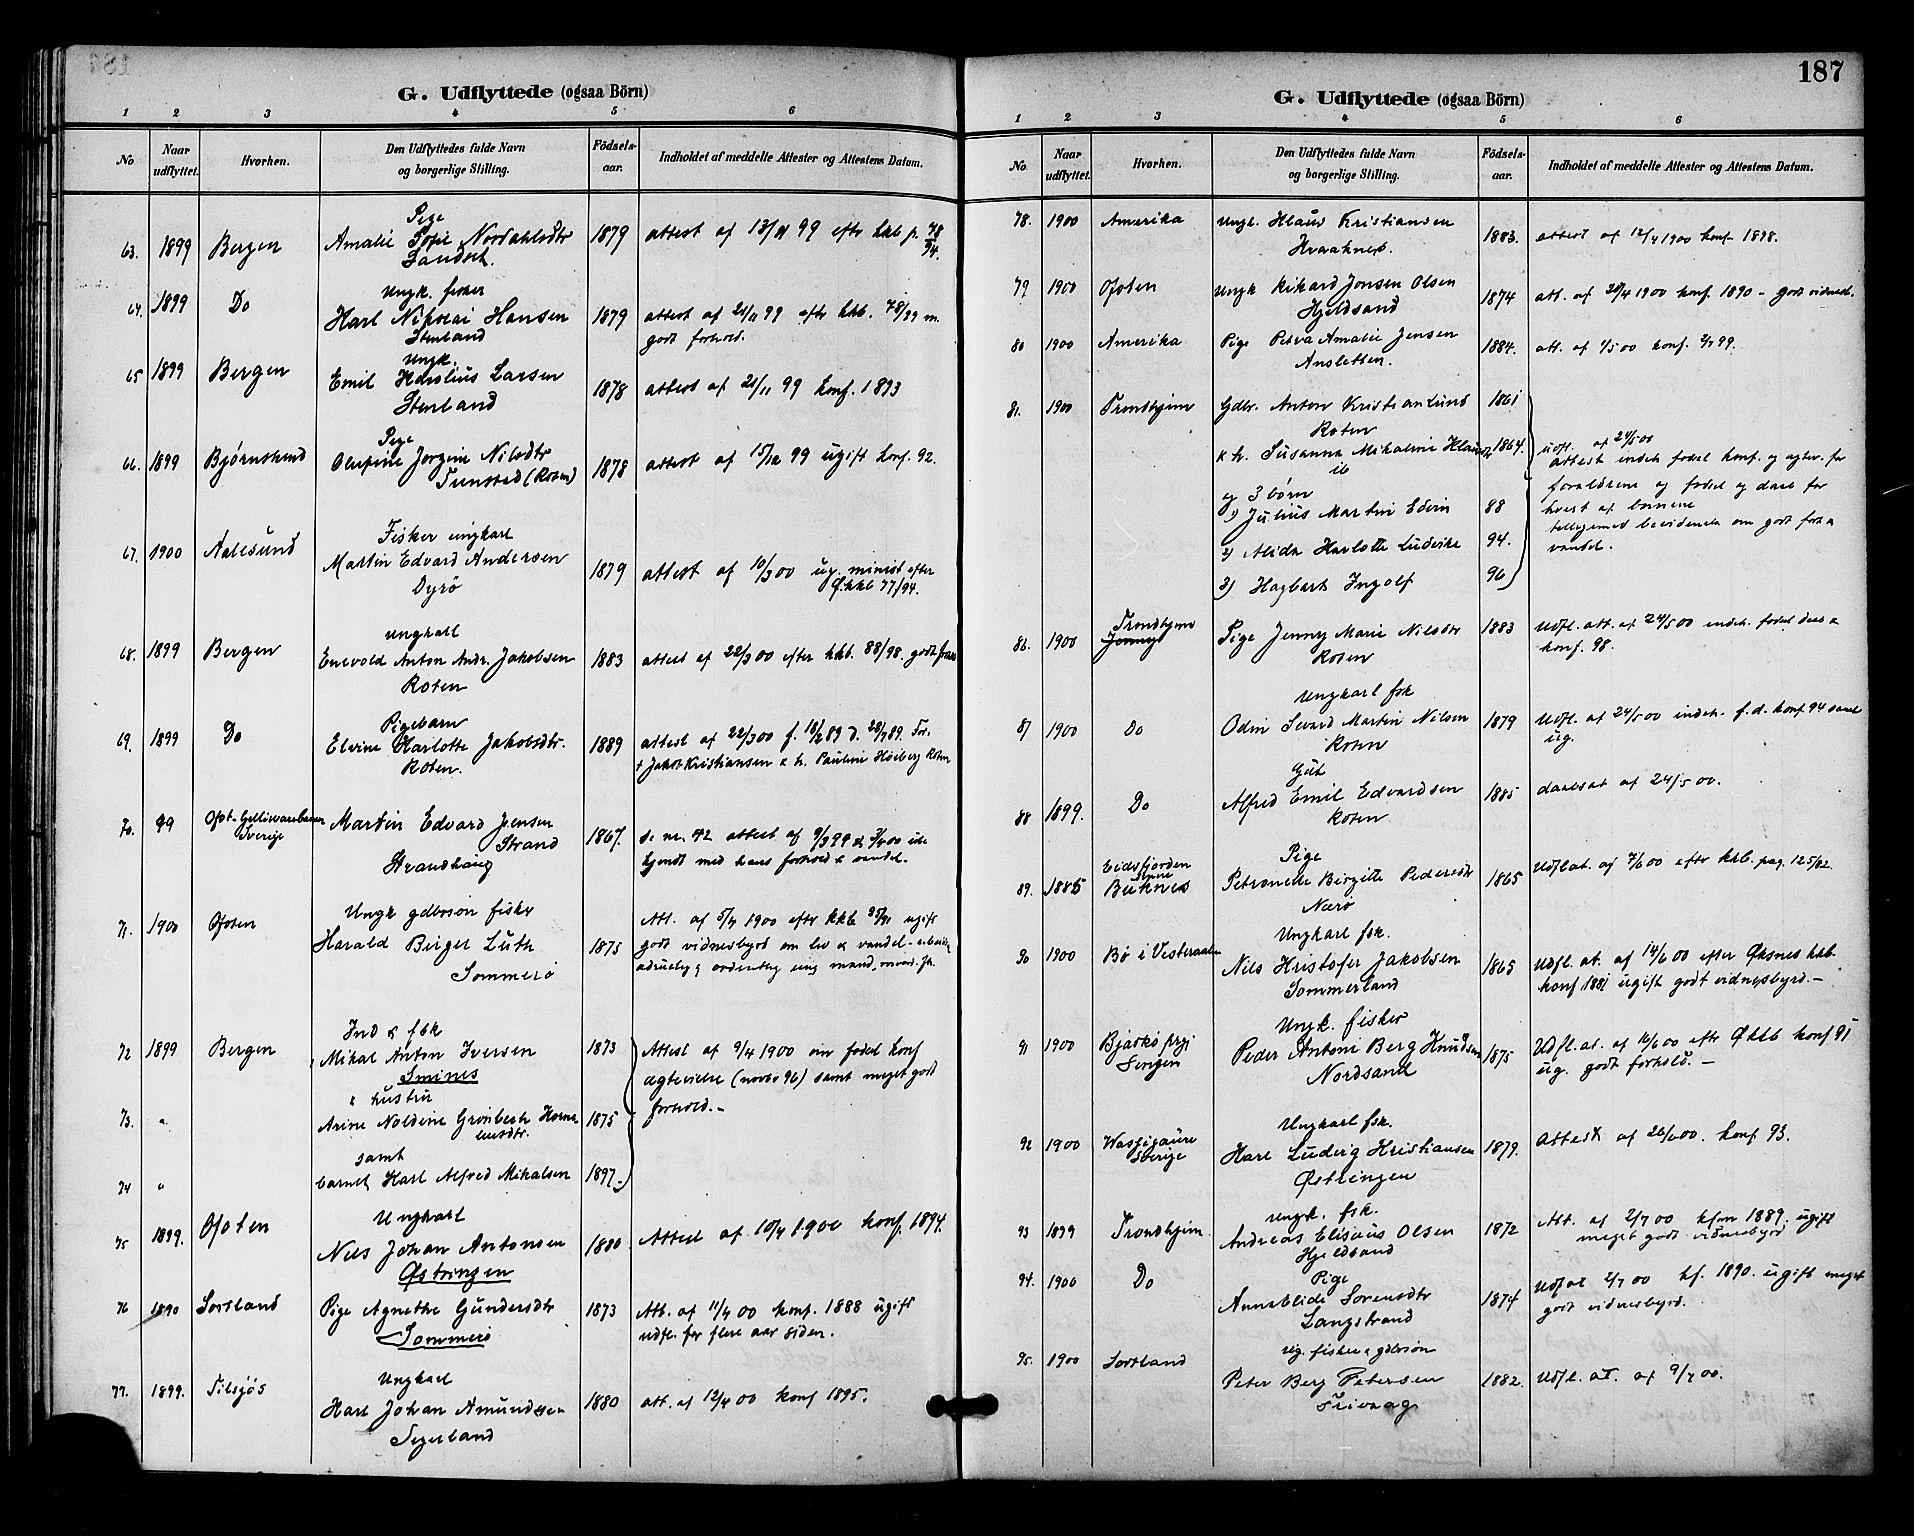 G. Udflyttede (ogsaa Börn)
1 2 3 4 5 6
No Naar udflyttet. Hvorhen. Den Udflyttedes fulde Navn og borgerlige Stilling. Födsels-aar. Indholdet af meddelte Attester og Attestens Datum.
Pige
63. 1899 Bergen Amalie Sofie Nordahlsdtr 1879 attest af 13/11 99 efter kkb p. 78/94.
Sandset.
Ungk. fisker
64. 1899 Do Karl Nikolai Hansen 1879 attest af 21/11 99 efter kkb. 78/99 m.
Stenland godt forhold.
Ungk.
65 1899 Bergen Emil Karolius Larsen 1878 attest af 21/11 99 konf. 1893
Stenland
Pige
66. 1899 Bjørnskind Olufine Jorgine Nilsdtr 1878 attest af 15/12 99 ugift konf. 92.
Tunstad (Roten)
Fisker ungkarl
67. 1900 Aalesund Martin Edvard Andersen 1879 attest af 10/3 00 ug. minist efter
Dyrø Ø. kkb 77/94.
ungkarl
68. 1899 Bergen Enevold Anton Andr. Jakobsen 1883 attest af 22/3 00 efter kkb. 88/98. godt
Roten
Pigebarn
69. 1899 Do Elvine Charlotte Jakobsdtr. 1889 attest af 22/3 00 f. 18/2 89 d. 28/7 89. For.
Roten. Jakob Kristiansen & h. Pauline Høiberg Roten
70. 99 Ofot. Gellivarebanen Martin Edvard Jensen 1867. se nr. 42 attest af 9/3 99 & 3/4 00
Sverige Strand kjendt med hans forhold & vandel.
Strandhaug
Ungk gdbrsøn fisker Att. af 5/4 1900 efter kkb 95/91 ugift
71. 1900 Ofoten Harald Birger Luth 1875 godt vidnesbyrd om liv & vandel -
Sommerø ædruelig & ordentlig ung mand,
Ind & fsk
72 1899 Bergen Mikal Anton Iversen 1873 Attest af 9/4 1900 om fødsel konf
Smines ægtevielse (novbr 96) samt meget godt
& hustru forhold.-
73. " Arine Noldine Grønbech Korne 1875
liusdtr.
samt
74 " barnet Karl Alfred Mikalsen 1897
Ungkarl
75 1899. Ofoten Nils Johan Antonsen 1880 Attest af 10/4 1900 konf. 1894.
Østringen
76 1890 Sortland Pige Agnethe Gundersdtr 1873 Att. af 11/4 00 konf. 1888 ugift
Sommerø udfl. for flere aar siden.
Ungkarl
77. 1899. Tilsjøs Karl Johan Amundsen 1880 att. af 12/4 00 konf 1895.
Segerland
187
G. Udflyttede (ogsaa Börn)
1 2 3 4 5 6
No. Naar udflyttet. Hvorhen. Den Udflyttedes fulde Navn og borgerlige Stilling. Födsels-aar. Indholdet af meddelte Attester og Attestens Datum.
78. 1900 Amerika Ungk. Klaus Kristiansen 1883. attest af 12/4 1900 konf 1898.
Kraaknes.
79 1900 Ofoten Ungk Rikard Jonsen Olsen 1874 att. af 28/4 1900 konf 1890 - godt vidnesb.
Hjeldsand
80 1900 Amerika Pige Petra Amalie Jensen 1884. att. af 1/5 00 konf. 2/7 99.
Ansletten.
81. 1900 Trondhjem Gdbr. Anton Kristian Lund 1861
Roten
& h. Susanna Mikaline Klausdtr 1864. udfl. af 24/5 00
ib attest indeh. fødsel konf. og ægtev. for
og 3 børn forældrene og fødsel og daab for
1) Julius Martin Edvin 88 hvert af børnene
tilligemed bevidnelse om godt forh. &
2) Alida Karlotte Ludvike 94. vandel.
3) Hagbart Ingolf 96
Trondhjem
86. 1900 Jenny Pige Jenny Marie Nilsdtr 1883 Udfl. att. af 24/5 00 indeh. fødsel daab &
Roten konf. 98.
Ungkarl fsk
87 1900 Do Odin Sevard Martin Nilsen 1879 Udfl. af 24/5 00 indeh. f. d. konf 94 samt
Roten ug.
Gut
88 1899. Do Alfred Emil Edvardsen 1885 daabsat af 24/5 00.
Roten
Eidsfjorden Pige
89. 1885 Buknes Petronelle Birgitte Pedersdtr 1865 Udfl.at. af 7/6 00 efter kkb. pag. 125/82.
Nærø
Ungkarl fsk.
90 1900 Bø i Vesteraalen Nils Kristofer Jakobsen 1865 Udfl. at. af 14/6 00 efter Øksnes kkb.
Sommerland konf 1881 ugift godt vidnesbyrd.-
Ungk. fisker
91 1900 Bjarkø prgj. Peder Antoni Berg Knudsen 1875 Udfl. at. af 16/6 00 efter Ø kkb konf 91
Sengen Nordsand ug. godt forhold.-
Ungkarl fsk.
92 1900 Wassijaure Karl Ludvig Kristiansen 1879. Attest af 26/6 00. konf 93.
Sverige Østringen
Ungk. fsk.
93 1899 Trondhjem. Andreas Elisæus Olsen 1872 Att. af 2/7 00 kfm 1889. ugift
Hjeldsand meget godt vidnesbyrd
Pige
94. 1900 Do Annablide Sørensdtr 1874 Udfl at 2/7 00 kf. 1890. ugift meget
Langstrand godt vidnesbyrd.
ug. fisker & gdbrsøn
95. 1900 Sortland Peter Berg Petersen 1882. Udfl. at. af 9/7 00.
Trivaag